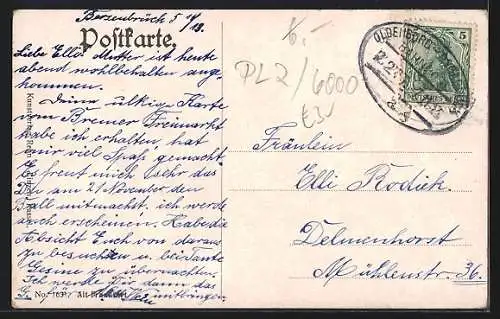 Bersenbrück 5 11/13.
Postkarte.
Liebe Ella! Mutter ist heute
abend wohlbehalten ange
kommen.
Deine ulkige Karte
vom Bremer Freimarkt
habe ich erhalten, hat
mir viel Spaß gemacht.
Es freut mich sehr das
Du am 21 November den
Ball mitmachst. ich werde
auch erscheinen. Habe die
Absicht Euch von daraus
zu besuchen u. bei Tante
Gesine zu übernachten.
Ich werde Dir dann das
mitbringen
Gr.
No. 1631. Alt-
Kunstverlag
6,-
PL2/6000
OLDENBURG
BAHNPOST
5
Fräulein
Elli Rodiek.
Delmenhorst
Mühlenstr. 36.